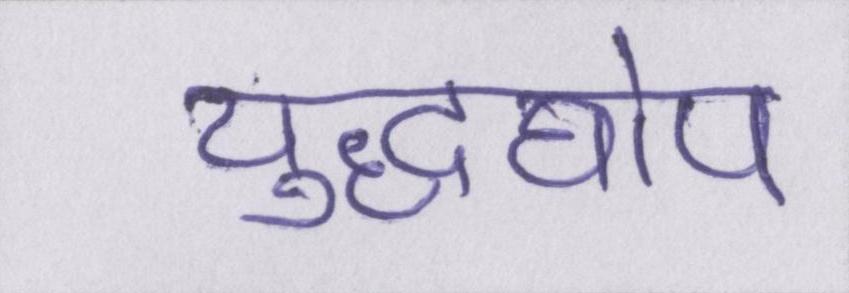 युद्धघोप